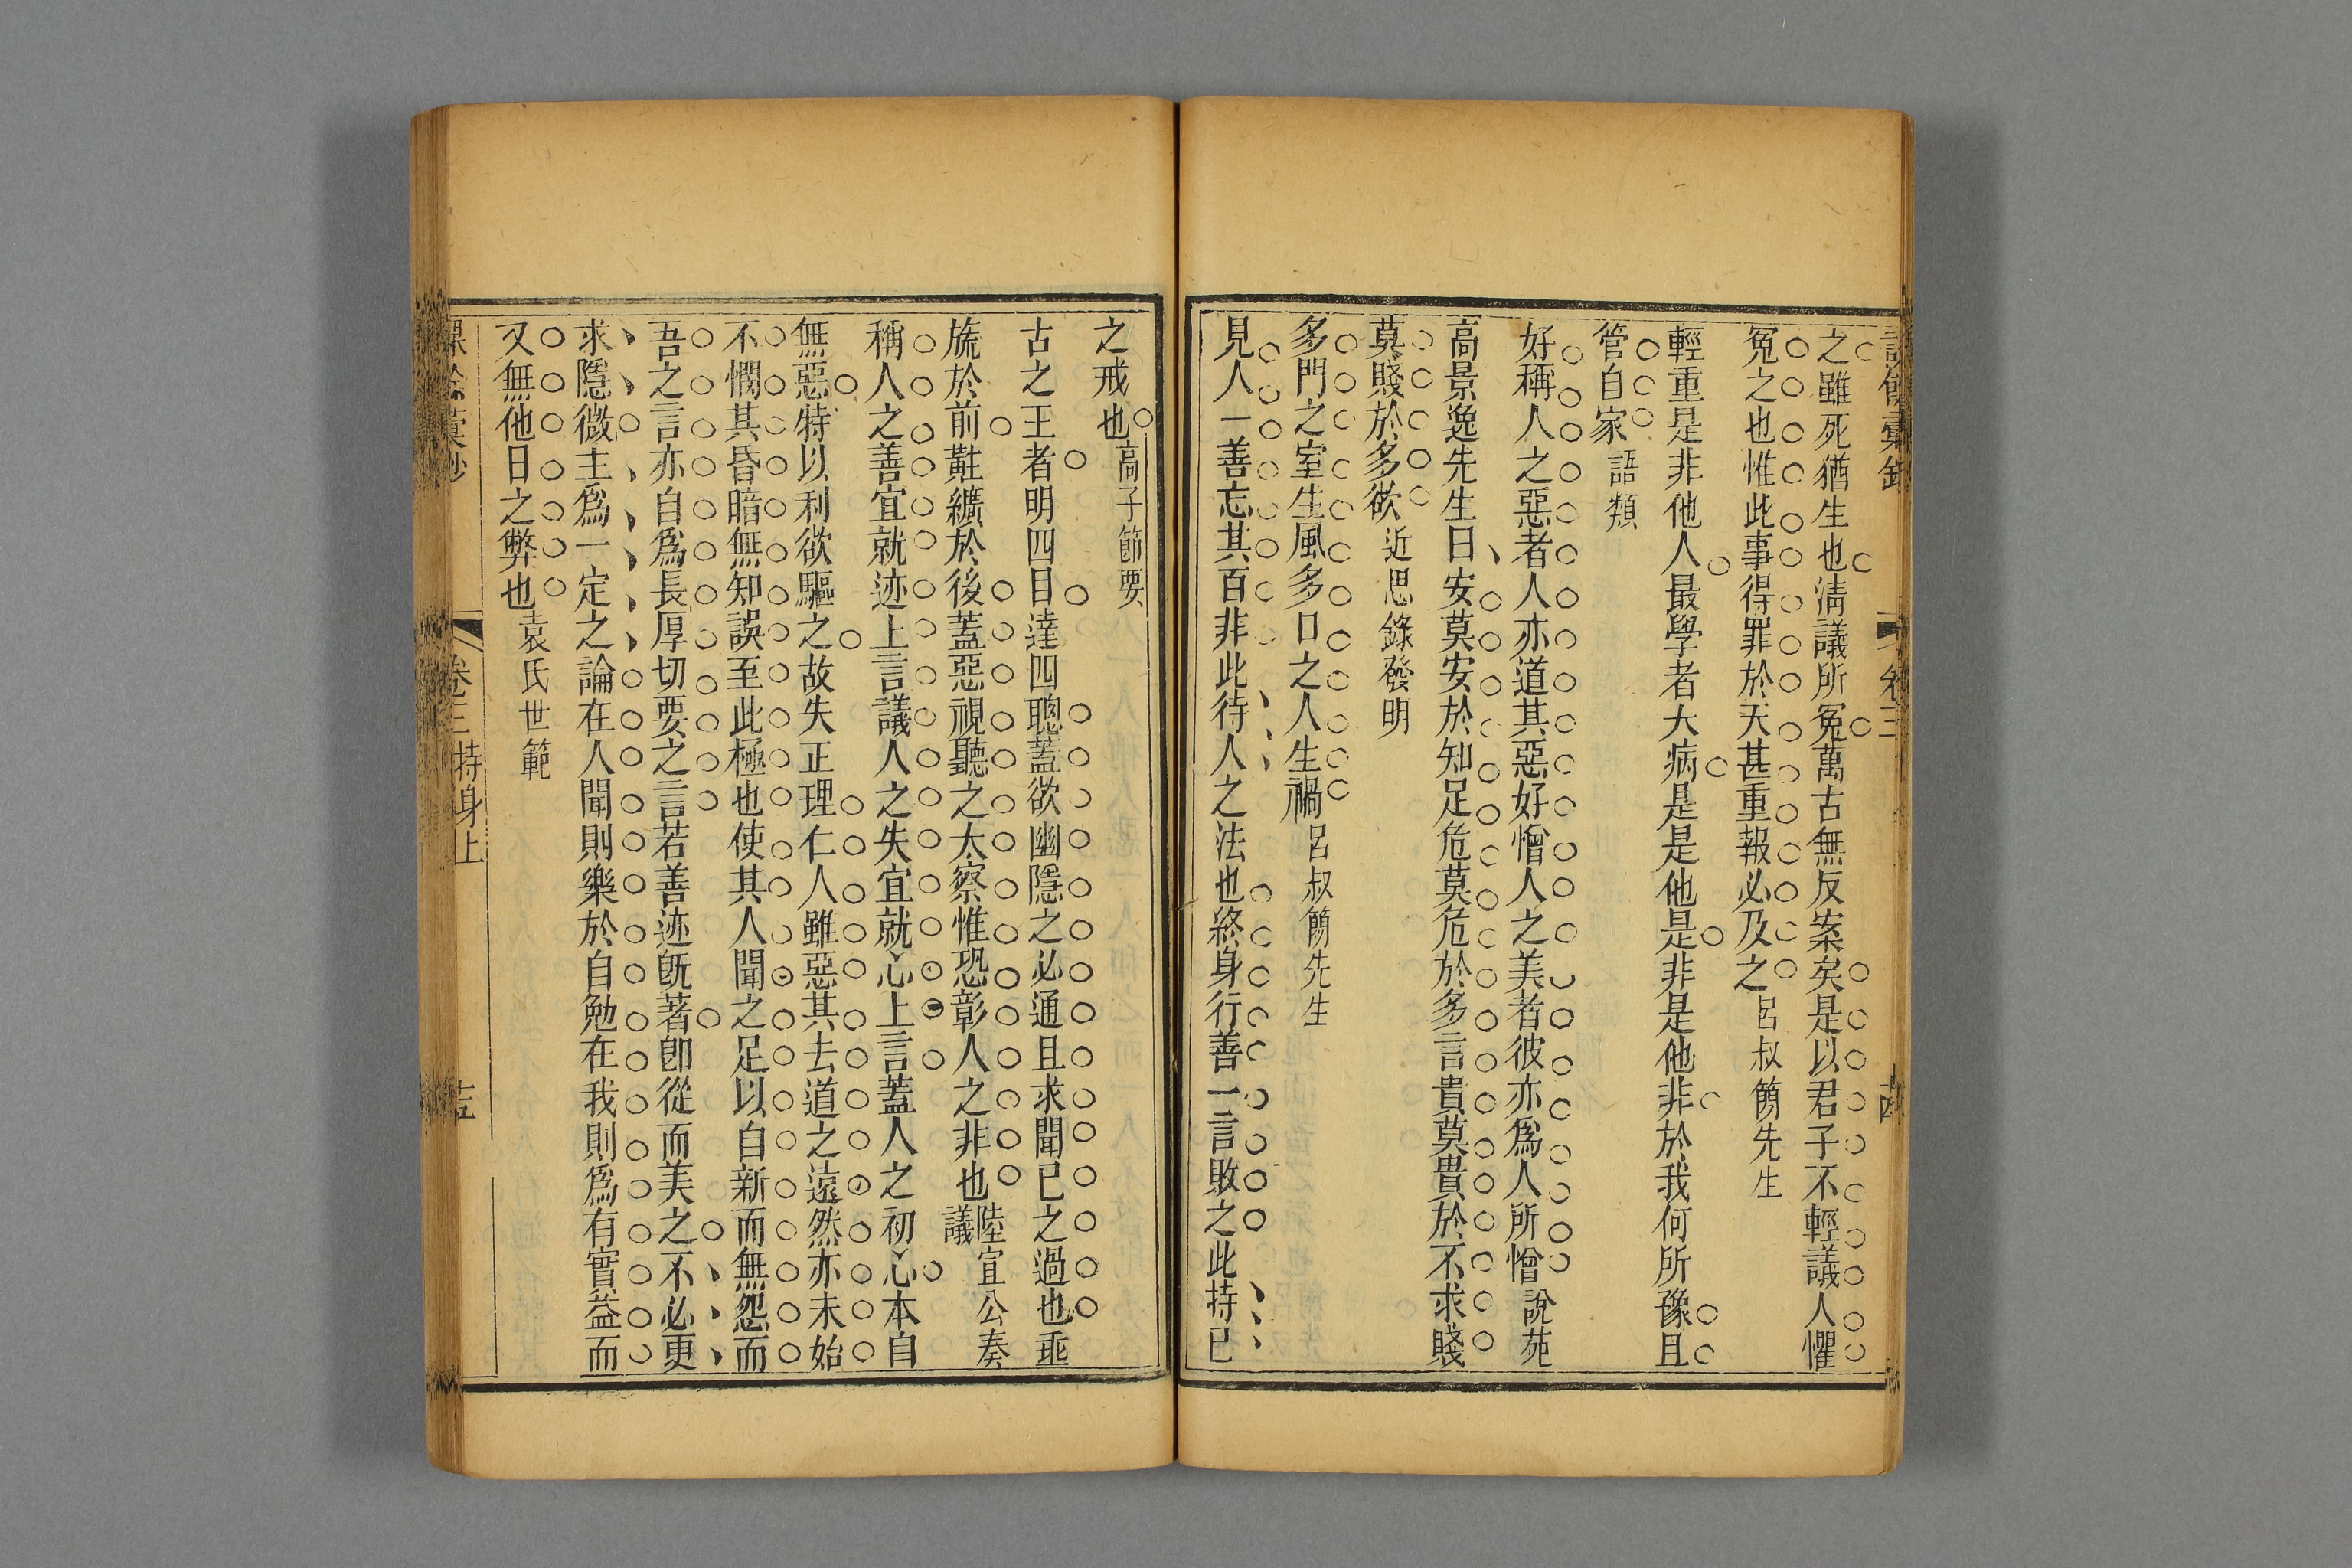 之雖死猶生也清議所冤萬古無反案矣是以君子不輕議人懼
冤之也惟此事得罪於天甚重報必及之呂叔簡先生
輕重是非他人最學者大病是是他是非是他非於我何所豫且
管自家語類
好稱人之惡者人亦道其惡好憎人之美者彼亦爲人所憎說苑
高景逸先生曰安莫安於知足危莫危於多言貴莫貴於不求賤
莫賤於多欲近思錄發明
多門之室生風多口之人生禍呂叔簡先生
見人一善忘其百非此待人之法也終身行善一言敗之此持已
之戒也高子節要
古之王者明四目達四聰蓋欲幽隱之必通且求聞已之過也乖
旒於前黈纊於後蓋惡視聽之太察惟恐彰人之非也陸宜公奏議
稱人之善宜就迹上言議人之失宜就心上言蓋人之初心本自
無惡特以利欲驅之故失正理仁人雖惡其去道之遠然亦未始
不憫其昏暗無知誤至此極也使其人聞之足以自新而無怨而
吾之言亦自爲長厚切要之言若善迹旣著卽從而美之不必更
求隱微主爲一定之論在人聞則樂於自勉在我則爲有實益而
又無他日之弊也袁氏世範
卷三持身上